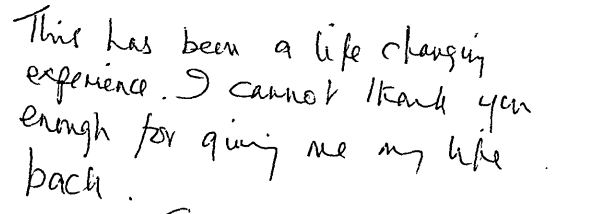 This has been a life changing
experience. I cannot thank you
enough for giving me my life
back.